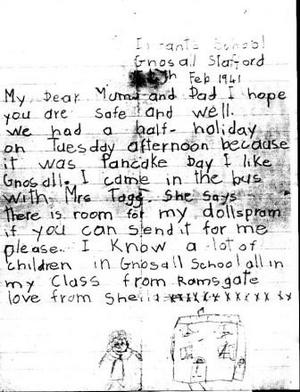 Infants School
Gnosall Stafford
th Feb 1941
My Dear Mum and Dad I hope
you are safe and well.
we had a half-holiday
on Tuesday afternoon because
it was Pancake Day I like
Gnosall. I came in the bus
with Mrs She says
there is room for my dollspram
if you can send it for me
please. I Know a lot of
children in Gnosall School all in
my Class from Ramsgate
love from Sheila xxxxxxxxxxx